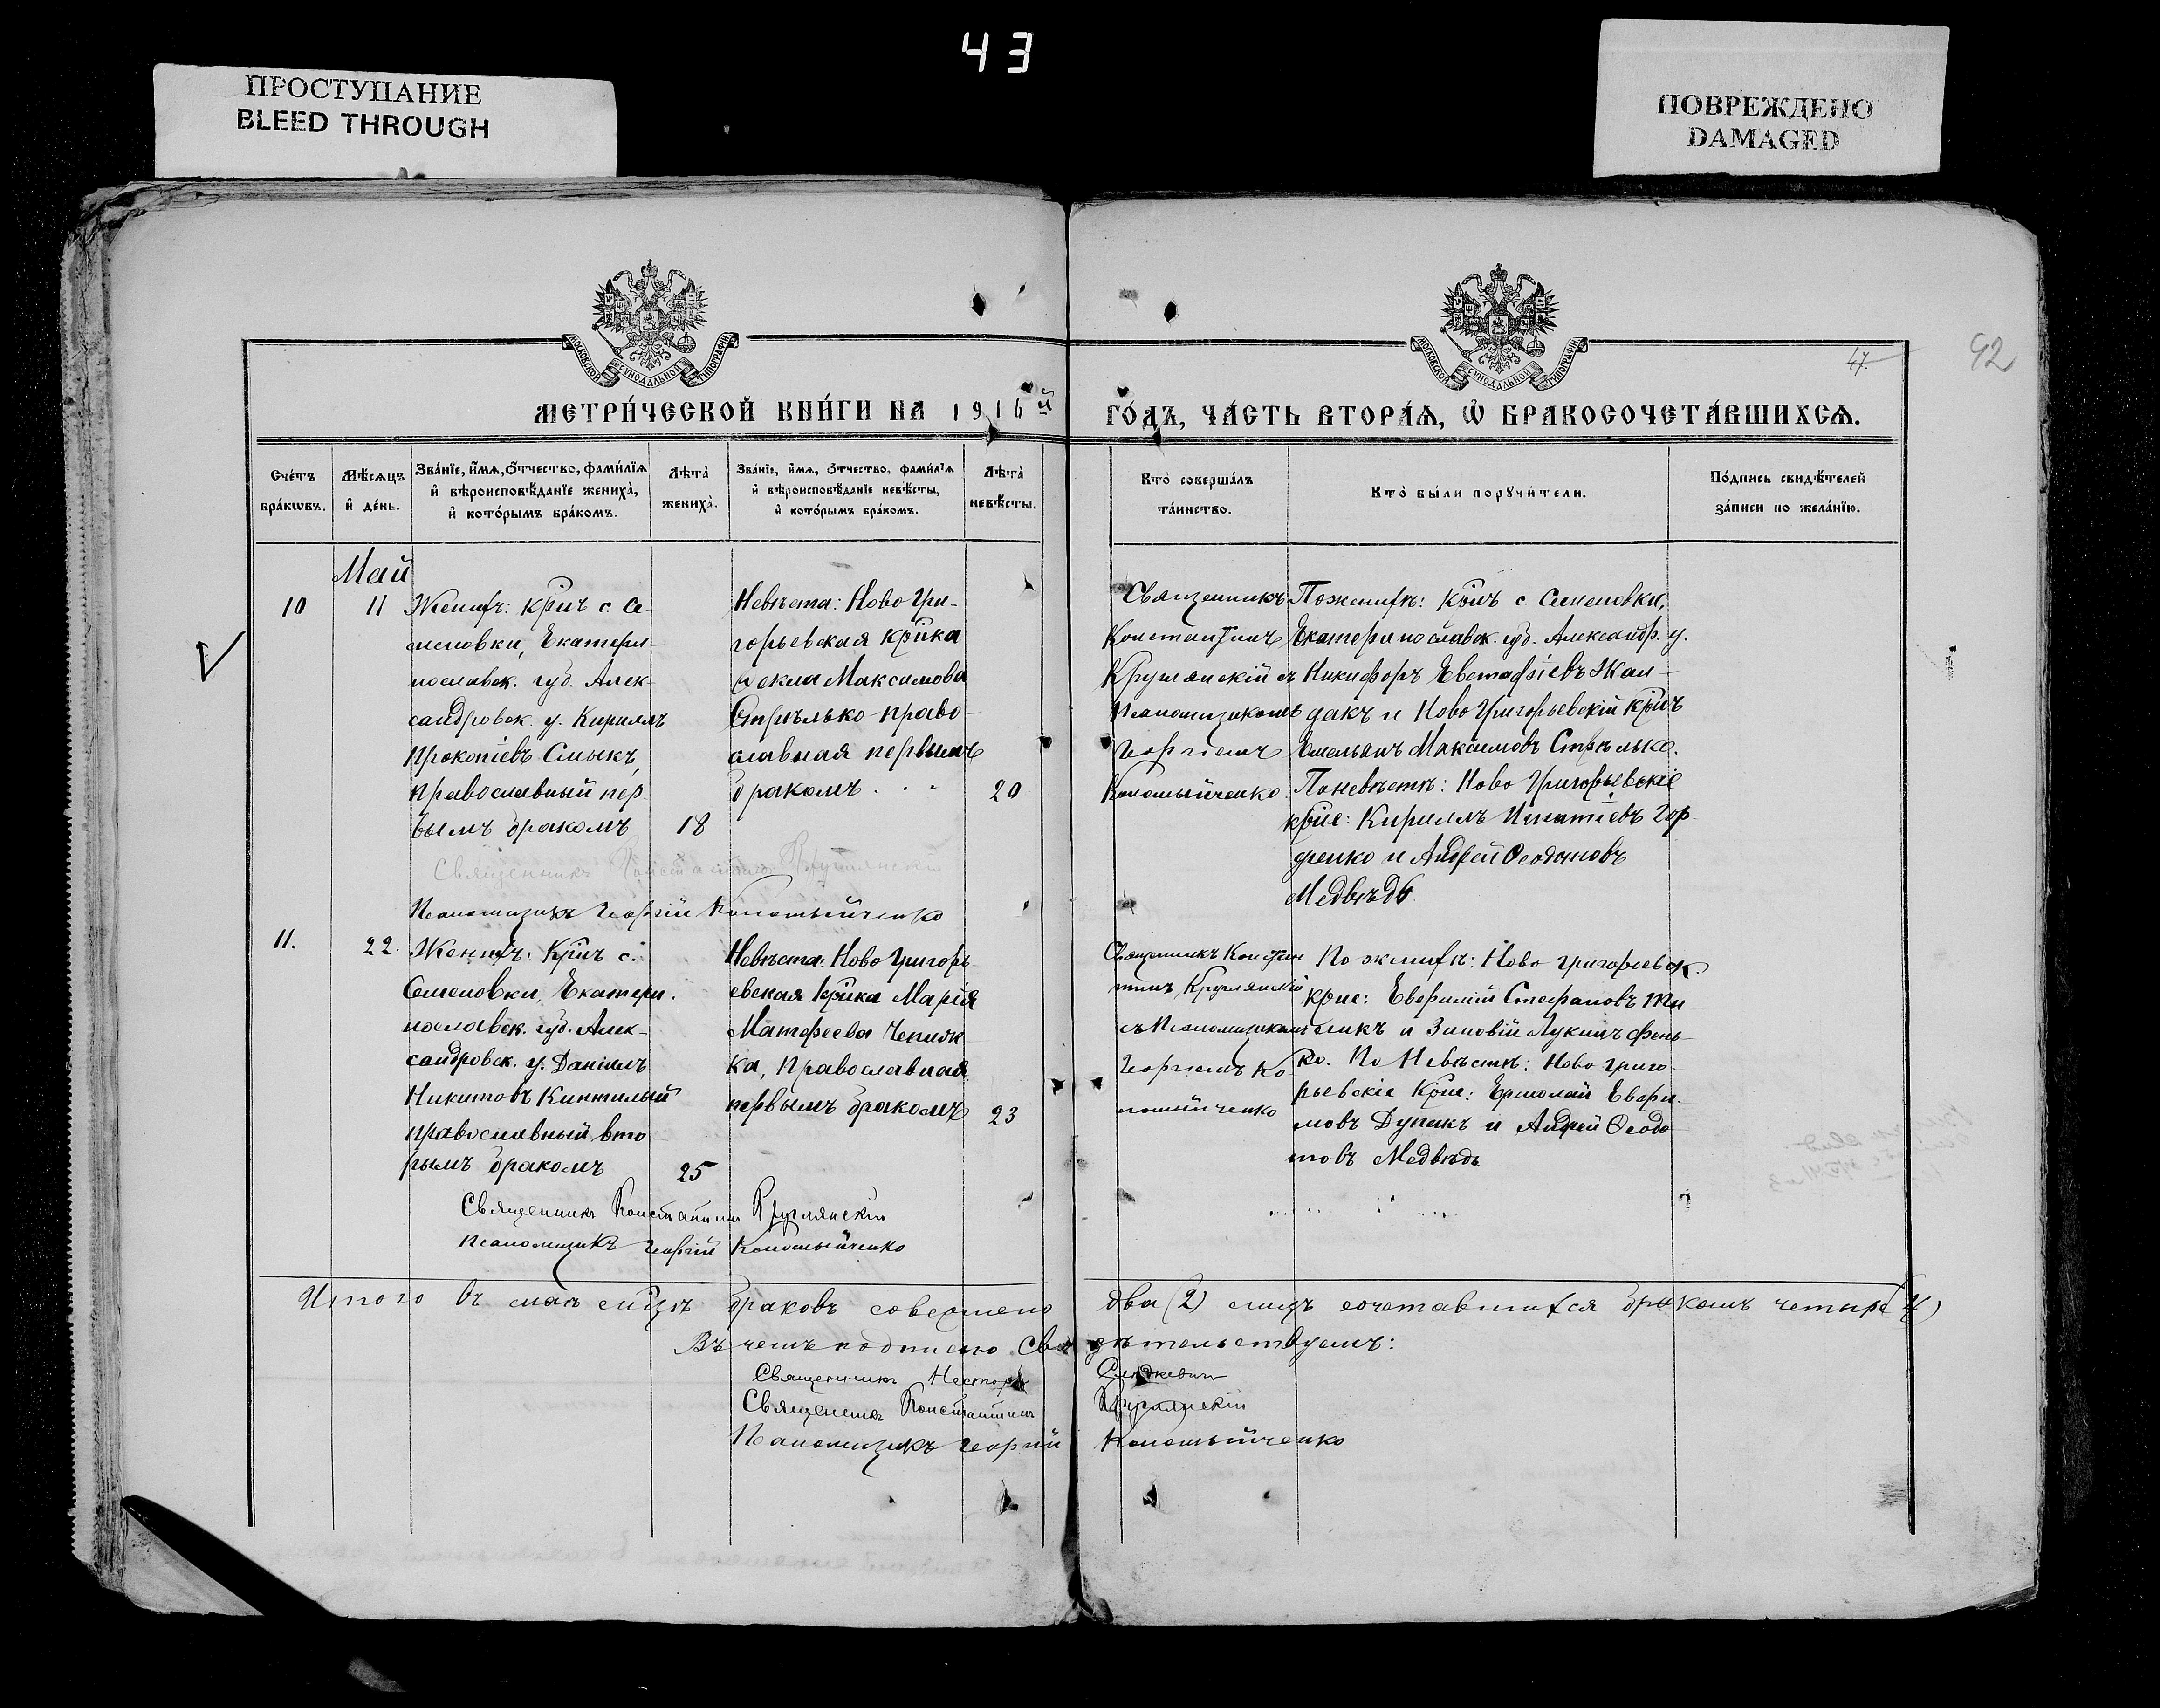 43
ПРОСТУПАНИЕ
BLEED THROUGH
ПОВРЕЖДЕНО
DAMAGED
МОСКОВСКОЙ СѴНОДАЛЬНОЙ ТИПОГРАФІИ
МОСКОВСКОЙ СѴНОДАЛЬНОЙ ТИПОГРАФІИ
47.
92
МЕТРИ́ЧЕСКОЙ КНИ́ГИ НА 1916й ГО́ДЪ, ЧА́СТЬ ВТОРА́Ѧ, Ѡ҆ БРАКОСОЧЕТА́ВШИХСѦ.
Сче́тъ бра́кѡвъ.
Мѣ́сѧцъ и҆ де́нь.
Зва́нїе, и҆́мѧ, ѻ҆́тчество, фами́лїѧ
и҆ вѣроисповѣ́данїе жениха̀,
и҆ кото́рымъ бра́комъ.
Лѣта̀ жениха̀.
Зва́нїе, и҆́мѧ, ѻ҆́тчество, фами́лїѧ
и҆ вѣроисповѣ́данїе невѣ́сты,
и҆ кото́рымъ бра́комъ.
Лѣта̀ невѣ́сты.
Кто̀ соверша́лъ та́инство.
Кто̀ бы́ли порꙋчи́тели.
По́дпись свидѣ́телей
за́писи по жела́нїю.
Май
10
11
Женихъ: крин с. Се
меновки, Екатери
нославск. губ. Алек
сандровск. у. Кириллъ
Прокопіевъ Смыкъ,
православный пер
вымъ бракомъ
18
Невѣста: Ново Гри-
горьевская крінка
Ѳекла Максимова
Стрѣлько право-
славная первымъ
бракомъ
20
Священникъ
Константинъ
Круглянскій съ
Псаломщикомъ
Георгіемъ
Коломыйченко
По женихѣ: крнъ с. Семеновки,
Екатеринославск. губ. Александр. у.
Никифоръ Евстафіевъ Жан-
дакъ и Ново Григорьевскій крнъ
Емельянъ Максимовъ Стрѣлько.
По невѣстѣ: Ново Григорьевскіе
крне: Кириллъ Игнатіевъ Гор
денко и Андрей Ѳеодотовъ
Медвѣдь
Священникъ Константинъ Круглянскій
Псаломщикъ Георгій Коломыйченко
11.
22.
Женихъ: Крнъ с.
Семеновки, Екатери.
нославск. губ. Алек-
сандровск. у. Даніилъ
Никитовъ
православный вто
рымъ бракомъ
25
Невѣста: Ново Григорь-
евская крнка Марія
Матфеева
ка, православная
первымъ бракомъ
23
Священникъ Констан
тинъ Круглянскій
съ Псаломщикомъ
Георгіемъ Ко
ломыйченко
По женихѣ: Ново Григорьевск.
крне: Евфимій Стефановъ
и Зиновій Лукинъ Фень-
ко. По Невѣстѣ: Ново Григо-
рьевскіе Крне: Ермолай Евфи-
мовъ Дупакъ и Андрей Ѳеодо-
товъ Медвѣдь
Священникъ Константинъ Круглянскій
Псаломщикъ Георгій Коломыйченко
Итого въ маѣ мѣсяцѣ браковъ совершено два (2) лицъ сочетавшихся бракомъ четыре (4)
Въ чемъ подписью свидѣтельствуемъ:
Священникъ Несторъ
Священникъ Константинъ Круглянскій
Псаломщикъ Георгій Коломыйченко